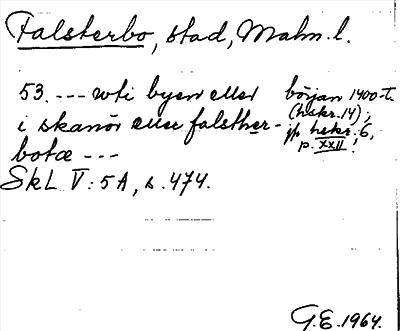 Falsterbo, stad, Malm. l.
53. --- wti byen eller
i skanör eller falsther-
botæ ---
början 1400-t.
(hskr. 14);
jp hskr. 6,
p. XXII.
SkL V: 5A, s. 474.
G.E. 1964.